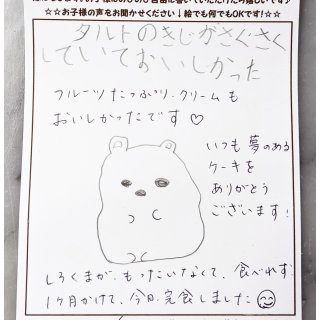 ☆☆お子様の声をお聞かせください！絵でも何でもOKです！☆☆
タルトのきじがさくさく
していておいしかった
フルーツたっぷり。クリームも
おいしかったです♡
いつも夢のある
ケーキを
ありがとう
ございます!
しろくまが、もったいなくて、食べれず…
1ヶ月かけて、今日、完食しました